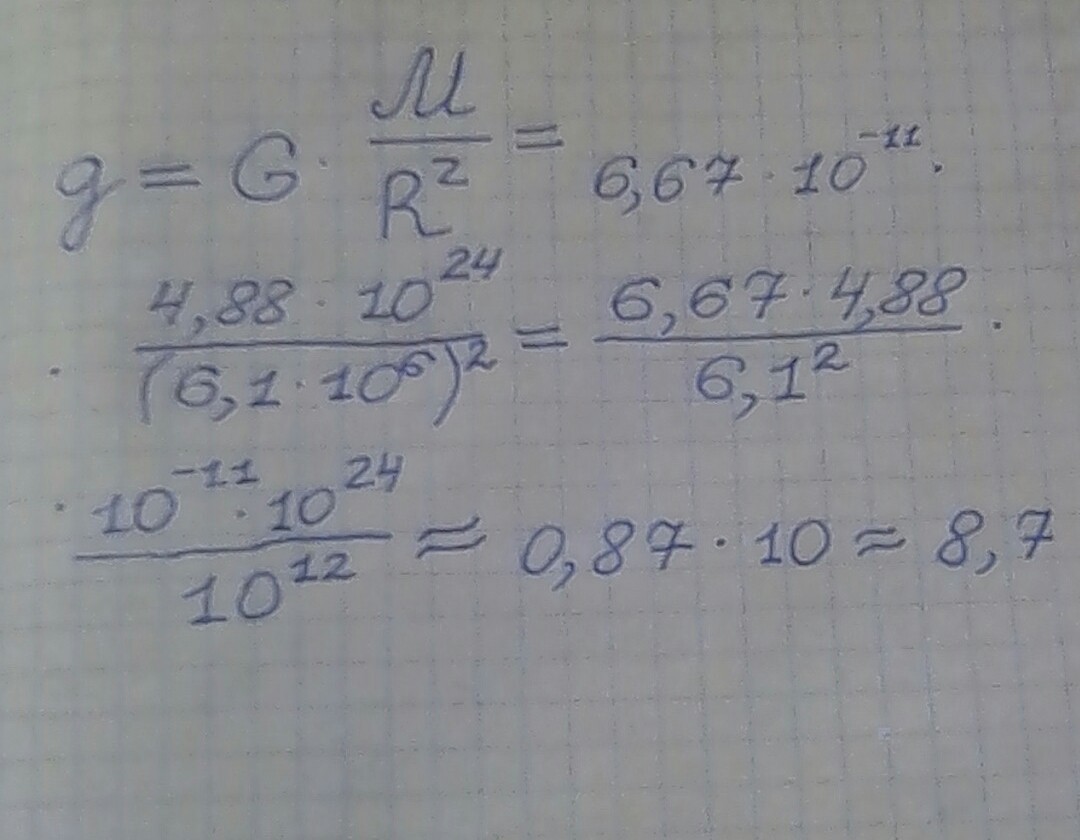 g = G · M/R² = 6,67 · 10⁻¹¹ ·
· 4,88 · 10²⁴/(6,1 · 10⁶)² = 6,67 · 4,88/6,1² ·
· 10⁻¹¹ · 10²⁴/10¹² ≈ 0,87 · 10 ≈ 8,7